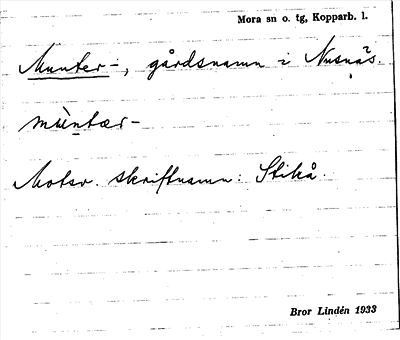 Mora sn o. tg, Kopparb. l.
Munter-, gårdsnamn i Nusnäs.
mùntær-
Motsv. skriftnamn: Stikå.
Bror Lindén 1933